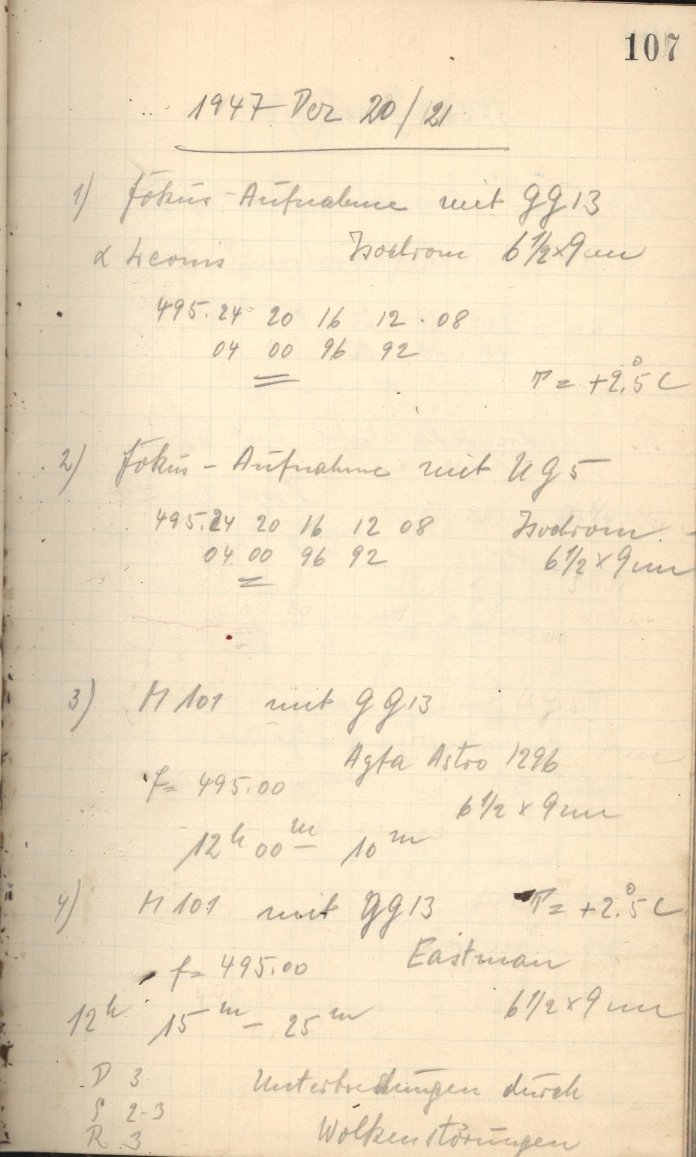 107
1947 Dez 20/21
1) Fokus-Aufnahme mit GG13
α Leonis Isodrom 6 1/2 x 9 cm
495.24 20 16 12 . 08
04 00 96 92
T = +2.°5 C
2) Fokus - Aufnahme mit UG5
495.24 20 16 12 08 Isodrom
04 00 96 92 6 1/2 x 9 cm
3) M 101 mit GG13
Agfa Astro 1296
f = 495.00
6 1/2 x 9 cm
12h 00m – 10m
4) M 101 mit GG13 T = +2.°5 C
f = 495.00 Eastman
12h 15m – 25m 6 1/2 x 9 cm
D 3 Unterbrechungen durch
2-3
R 3 Wolkenstörungen